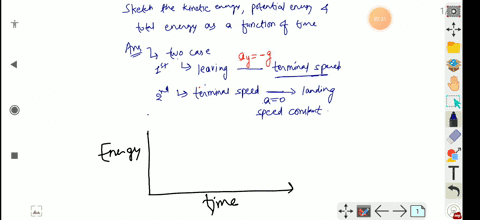 Sketch the kinetic energy, potential energy &
total energy as a function of time
Ans ↳ two case
1st ↳ leaving — terminal speed
ay = -g
2nd ↳ terminal speed → landing
a=0
speed constant.
Energy
time
1